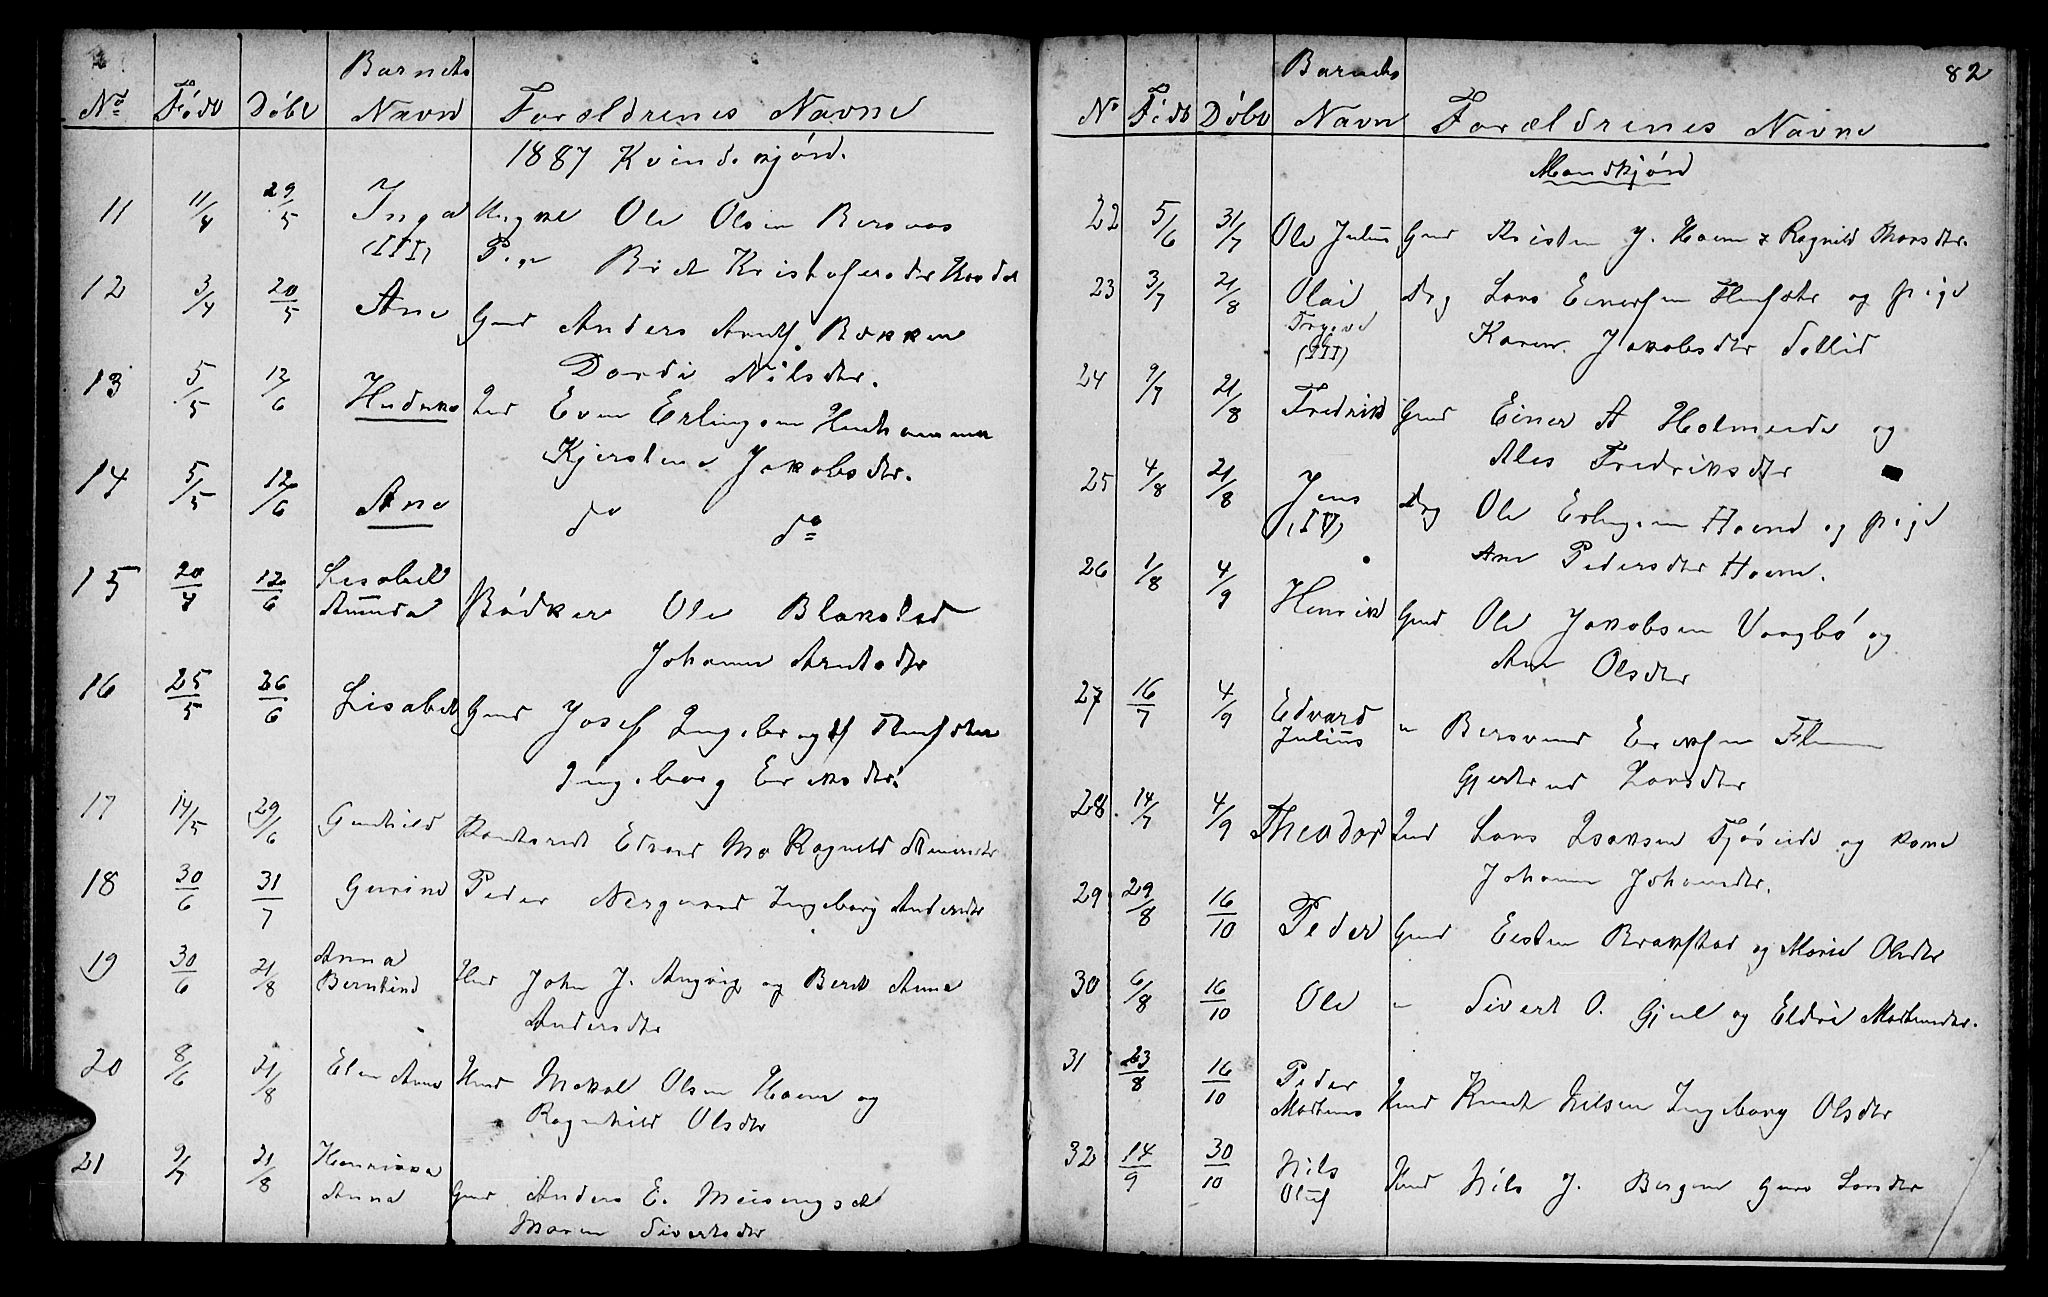 Barnets
No Född Döbt Navn Forældrenes Navne
1887 Kvindekjön.
11 11/4 29/5 Inga Ungkl Ole Olsen Bersaas
(III) Pige Brit Kristofersdtr
12 3/4 20/5 Ane Gmd Anders Arntsn. Bakken
Dordi Nilsdtr.
13 5/5 12/6 Ind Even Erlingsen
Kjerstene Jakobsdtr.
14 5/5 12/6 Ane do do
15 20/4 12/6 Lisabet
Amunda Bödker Ole Blakstad
Johanna Arntsdtr
16 25/5 26/6 Lisabet Gmd Josef Ingebrogts
Ingeborg Eriksdtr.
17 14/5 29/6 Gunhild Edvard Mo Ragnild
18 30/6 31/7 Gurine Peder Nergaard Ingeborg Andersdtr
19 30/6 21/8 Anna
Berntine Hmd John J. Angvig og Berit Anna
Andersdtr
20 8/6 21/8 Elen Anna Hmd Mikal Olsen Hoem og
Ragnhild Olsdtr
21 9/7 21/8 Henrikka
Anna Gmd Anders E. Meisingset
Maren Sivertsdtr
82
Barnets
No Föds Döbt Navn Forældrenes Navne
Mandkjön
22 5/6 31/7 Ole Julius Gmd Kristen J. Hoem & Ragnild Thorsdtr.
23 3/7 21/8 Olai Drg Lars Einersen og pige
Trygve Karen Jakobsdtr Sollid
(III)
24 9/7 21/8 Fredrik Gmd Einer A Holmeide og
Ales Fredriksdtr
25 4/8 21/8 Jens Drg Ole Erlingsen Hoem og pige
(IV) Ane Pedersdtr Hoem.
26 1/8 4/9 Henrik Gmd Ole Jakobsen Vaagbö og
Ane Olsdtr
27 16/7 4/9 Edvard
Julius " Bersvend Eriksen Flemm
Gjertrud Larsdtr
28 14/7 4/9 Theodor Ind Lars Isaksen Fjöseide og kone
Johanna Johansdtr.
29 29/8 16/10 Peder Gmd Eisten Brakstad og Marie Olsdtr
30 6/8 16/10 Ole " Sivert O. Gjul og Eldri
31 23/8 16/10 Peder
Martinus Hmd Knudt Nilsen Ingeborg Olsdtr
32 14/9 30/10 Nils
Oluf Hmd Nils J. Bergem Guro Larsdtr